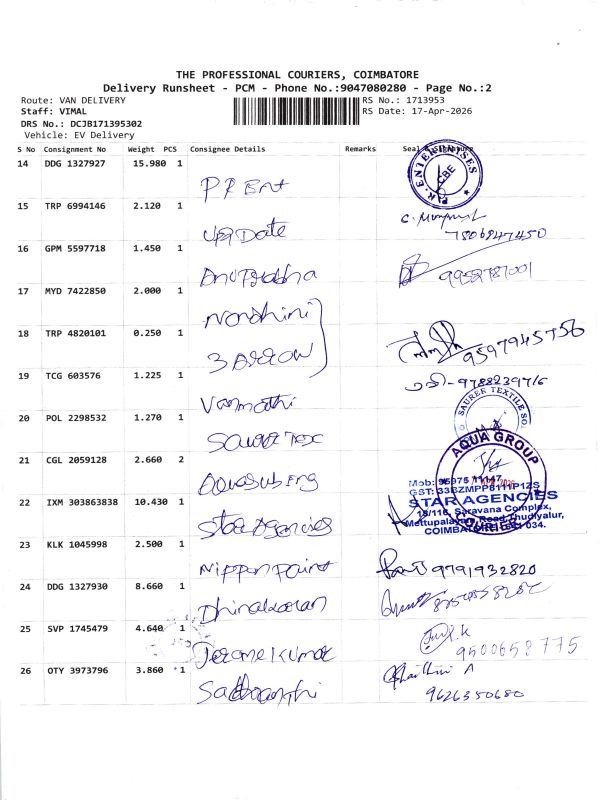 THE PROFESSIONAL COURIERS, COIMBATORE
Delivery Runsheet - PCM - Phone No.:9047080280 - Page No.:2
Route: VAN DELIVERY RS No.: 1713953
Staff: VIMAL RS Date: 17-Apr-2026
DRS No.: DCJB171395302
Vehicle: EV Delivery
S No Consignment No Weight PCS Consignee Details Remarks Seal &
14 DDG 1327927 15.980 1
P.K. ENTERPRISES CBE
PR Ent
15 TRP 6994146 2.120 1
UpDate
7806847450
16 GPM 5597718 1.450 1
Anupradha
9952787001
17 MYD 7422850 2.000 1
Nandhini
18 TRP 4820101 0.250 1
3 Arrow
9597945756
19 TCG 603576 1.225 1
9788239716
Vanmathi
SAURER TEXTILE SO
20 POL 2298532 1.270 1
Saurer Tex
AQUA GROUP
21 CGL 2059128 2.660 2
Aquasub Eng
Mob: 95975 11147
GST: 33BZMPP8111P1ZS
STAR AGENCIES
18/116, Saravana Complex,
Mettupalayam Road, Thudiyalur,
COIMBATORE 034.
22 IXM 303863838 10.430 1
Star Agencies
23 KLK 1045998 2.500 1
Nippon Paint
9791932820
24 DDG 1327930 8.660 1
Dhinakaran
25 SVP 1745479 4.640 1
Jerome Kumar
9500658775
26 OTY 3973796 3.860 1
9626350680